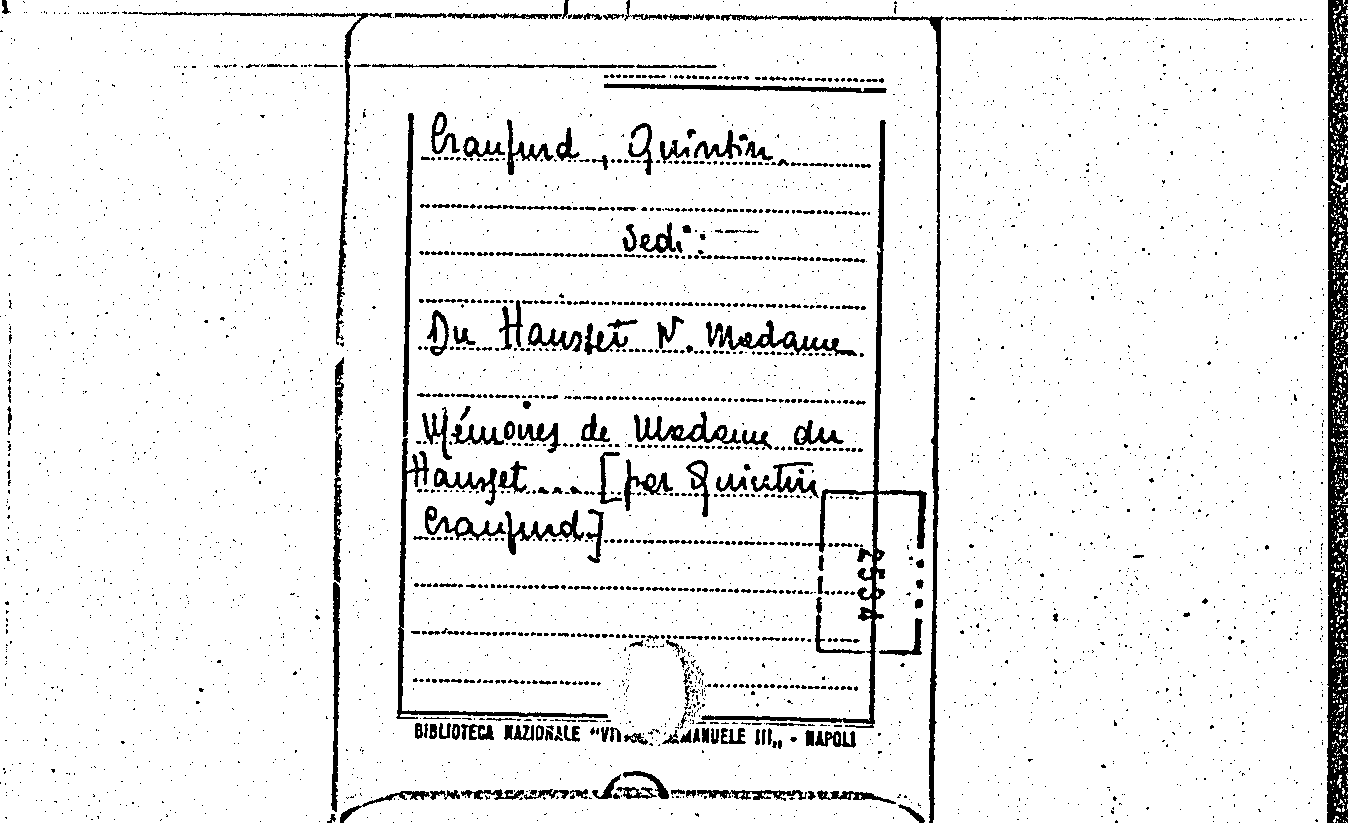 Craufurd, Quintin.
Vedi:
Du Hausset N. Madame
Mémoires de Madame du
Hausset... [par Quintin
Craufurd.]
2534
BIBLIOTECA NAZIONALE "VIT EMANUELE III„ - NAPOLI